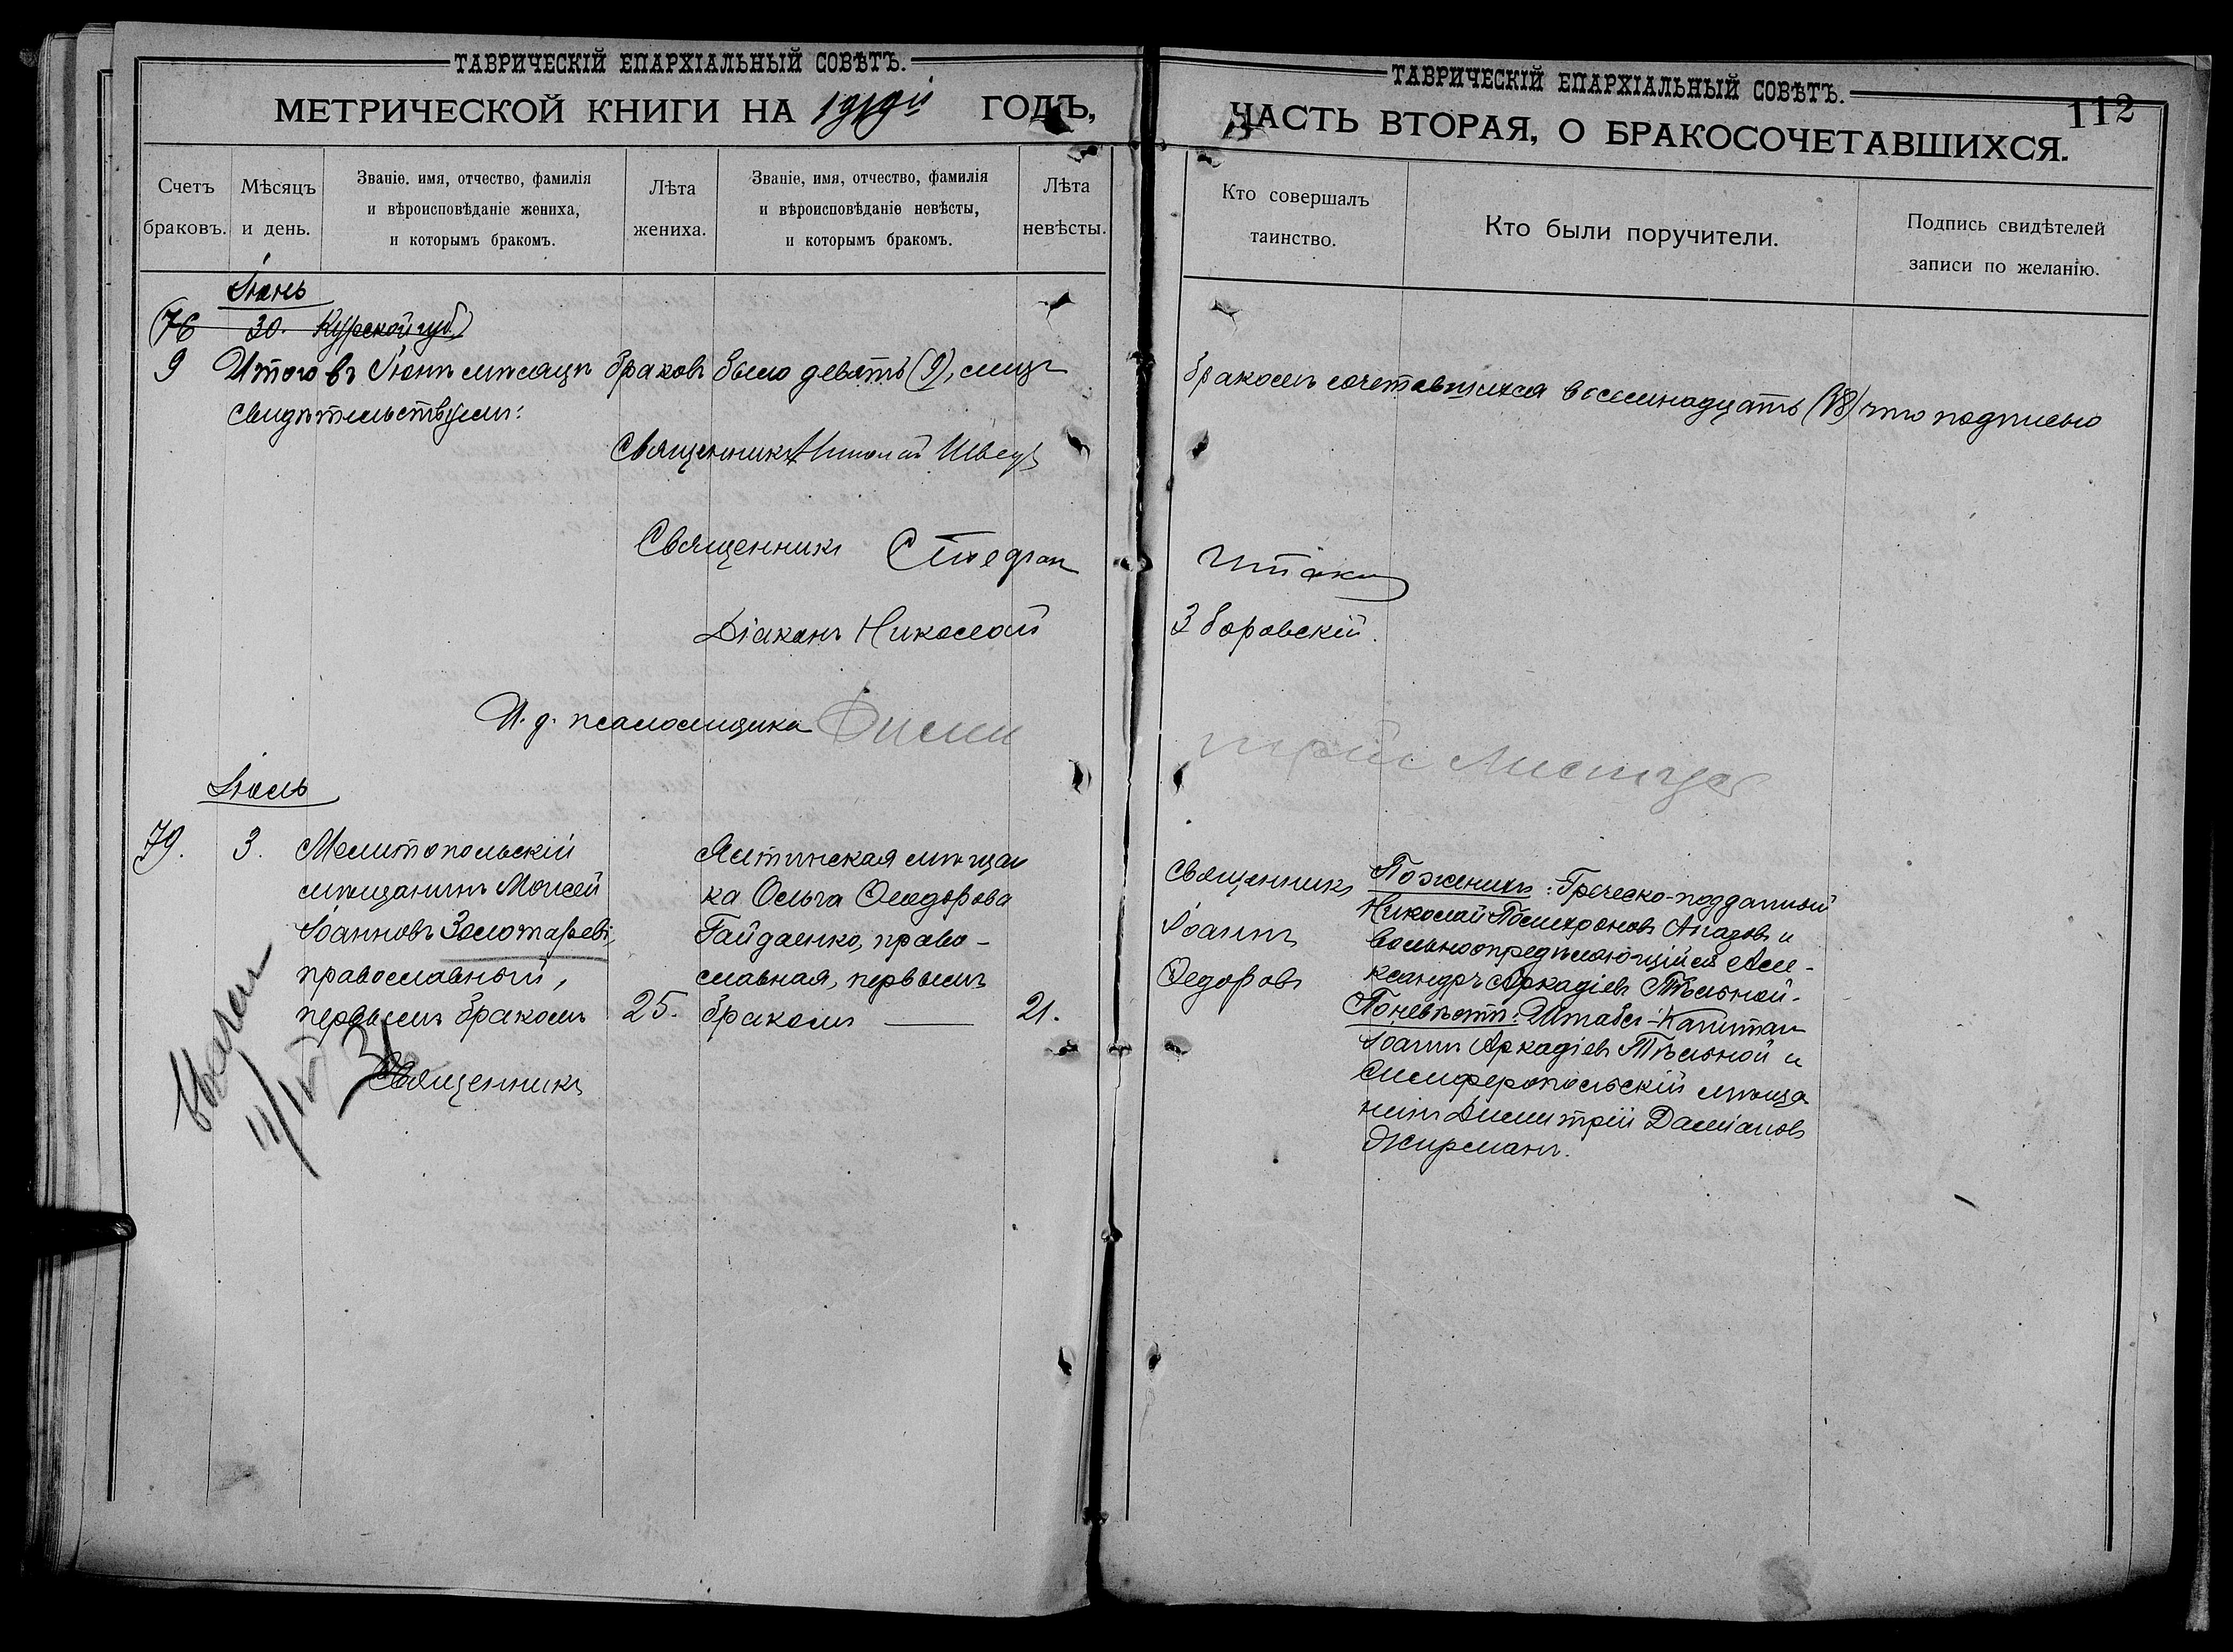 ТАВРИЧЕСКІЙ ЕПАРХІАЛЬНЫЙ СОВѢТЪ.
МЕТРИЧЕСКОЙ КНИГИ НА 1919й ГОДЪ,
Счетъ браковъ.
Мѣсяцъ и день.
Званіе, имя, отчество, фамилія
и вѣроисповѣданіе жениха,
и которымъ бракомъ.
Лѣта жениха.
Званіе, имя, отчество, фамилія
и вѣроисповѣданіе невѣсты,
и которымъ бракомъ.
Лѣта невѣсты.
Іюнь
(76 30. Курской губ.)
9 Итого въ Іюнѣ мѣсяцѣ браковъ было девять (9), лицъ
свидѣтельствуемъ:
Священникъ Николай Швецъ
Священникъ Стефан
Діаконъ Николай
И. д. псаломщика Дими
Іюль
79. 3.
Мелитопольскій
мѣщанинъ Моисей
Іоанновъ Золотаревъ,
православный,
первымъ бракомъ
25.
Священникъ
Ялтинская мѣщан
ка Ольга Ѳеодорова
Гайдаенко, право-
славная, первымъ
бракомъ
21.
11/IV 31
ТАВРИЧЕСКІЙ ЕПАРХІАЛЬНЫЙ СОВѢТЪ.
112
ЧАСТЬ ВТОРАЯ, О БРАКОСОЧЕТАВШИХСЯ.
Кто совершалъ таинство.
Кто были поручители.
Подпись свидѣтелей
записи по желанію.
бракомъ сочетавшихся восемнадцать (18) что подписью
Зборовскій.
трій
Священникъ
Іоаннъ
Ѳедоровъ
По женихѣ: Греческо-подданный
Николай
вольноопредѣляющійся Але-
ксандръ Аркадіевъ Тѣльной.
По невѣстѣ: Штабсъ-Капитан
Іоаннъ Аркадіевъ Тѣльной и
Симферопольскій мѣща
нинъ Димитрій Даміановъ
Жирманъ.